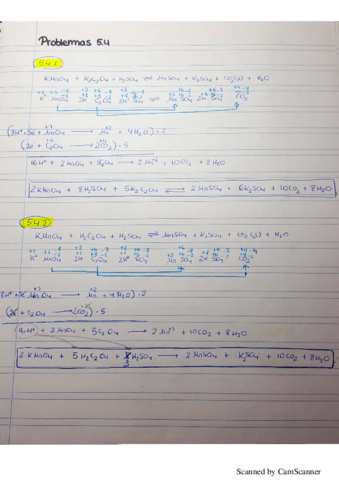 Problemas 5.4
5.4.1
KMnO4 + K2C2O4 + H2SO4 ⇌ MnSO4 + K2SO4 + CO2(g) + H2O
K+ MnO4- 2K C2O4 2H+ SO4 ⇌ Mn SO4 2K SO4 CO2
(8H+ + 5e + MnO4 → Mn + 4H2O) · 2
(2e + C2O4 → 2CO2) · 5
16H+ + 2MnO4 + 5C2O4 → 2Mn+2 + 10CO2 + 8H2O
2KMnO4 + 8H2SO4 + 5K2C2O4 ⇌ 2MnSO4 + 6K2SO4 + 10CO2 + 8H2O
5.4.2
KMnO4 + H2C2O4 + H2SO4 ⇌ MnSO4 + K2SO4 + CO2(g) + H2O
K+ MnO4- 2H C2O4 2H+ SO4 Mn SO4 2K SO4 CO2
8H+ + 5e MnO4 → Mn + 4H2O) · 2
(2e + C2O4 → 2CO2) · 5
+ 2MnO4 + 5C2O4 → 2Mn+2 + 10CO2 + 8H2O
2KMnO4 + 5H2C2O4 + 3H2SO4 → 2MnSO4 + K2SO4 + 10CO2 + 8H2O
Scanned by CamScanner